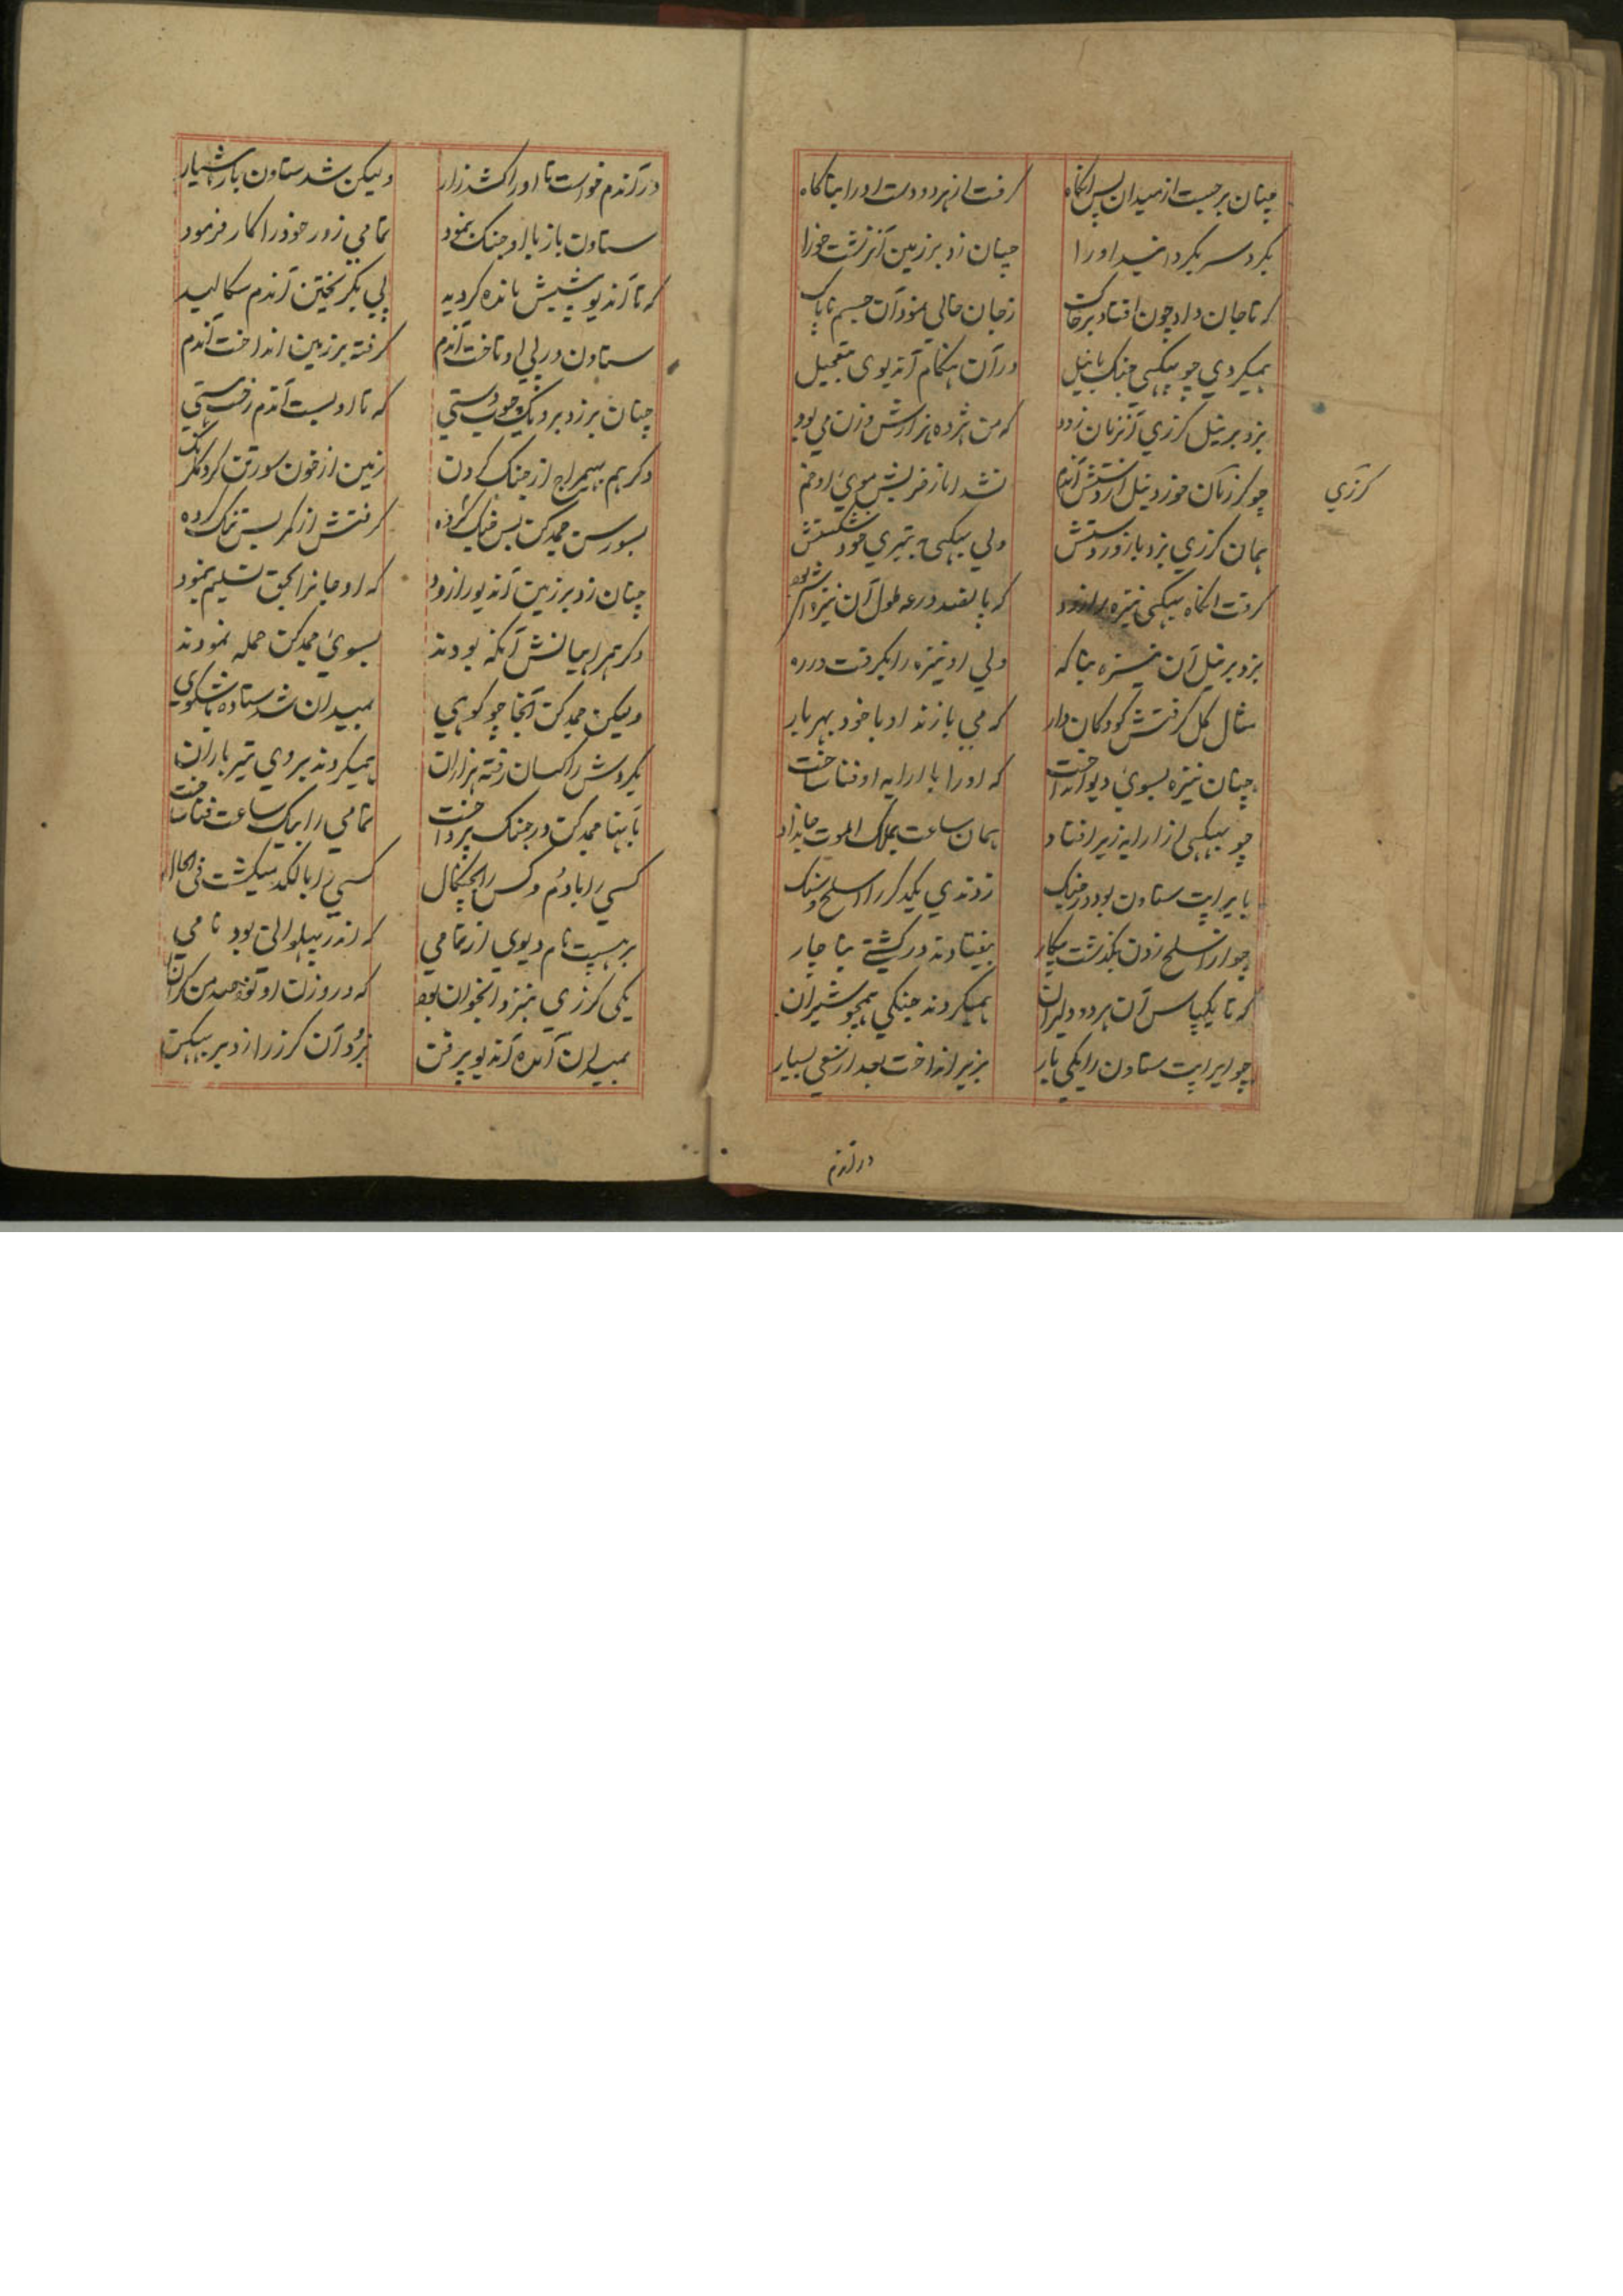 چنان برجست از میدان پس انگاه گرفت از هر دو دست او را بناگاه
بگرد سر بگردانید او را چنان زد بر زمین آن زشت خورا
که تا جان داد چون افتاد بر خاک ز جان خالی نمود آن جسم ناپاک
همیکردی چو بهیکهی جنک با نیل در آن هنکام آندیوی بتعجیل
بزد بر نیل کرزی آنزمان زود که من هژده هزارش وزن می بود
چو کرز آن خورد نیل از دستش آندم نشد اما ز ضربش موی او خم
همان کرزی بزد با زور دستش ولی بهیکهی به تیری خود شکستش
کرفت انکاه بهیکهی نیزه را زود که پانصد درعه طول آن نیزه اش بود
بزد بر نیل آن نیزه بناکه ولی او نیزه را بکرفت در ره
مثال کل کرفتش کودکان وار که می بازند او با خود بهر بار
چنان نیزه بسوی دیو انداخت که او را با ارابه او فنا ساخت
چو بهیکهی از ارابه زیر افتاد همان ساعت بملک الموت جانداد
با یراپت ستاون بود در جنک زدندی یکدکر را اسلح و سنک
چو از اسلح زدن بکذشت پیکار بیفتادند در کشتی بناچار
که تا یکپاس آن هر دو دلیران همیکردند جنکی همچو شیران
چو ایراپت ستاون را یکی بار بزیر انداخت بعد از سعی بسیار
کرزی
در آندم
در آندم خواست تا او را کشد زار ولیکن شد ستاون باز هشیار
ستاون باز با او جنک بنمود تمامی زور خود را کار فرمود
که تا آندیو پیشش مانده کردید پی بکریختن آندم سکالید
ستاون در پی او تاخت آندم کرفته بر زمین انداخت آندم
چنان بر زد برو یک چوب دستی که تا او بست آندم رخت هستی
دکر هم بهیمراج از جنک کردن زمین از خون سورتن کرد کلرنک
بسورسن جمدکن بس جنک کرده کرفتش از کمر بس تنک کرده
چنان زد بر زمین آندیو را زود که او جانرا بحق تسلیم بنمود
دکر همراهیانش آنکه بودند بسوی جمدکن حمله نمودند
ولیکن جمدکن آنجا چو کوهی بمیدان شد ستاده با شکوهی
بکردش راکسان رفته هزاران همیکردند بروی تیر باران
به تنها جمدکن در جنک پرداخت تمامی را بیک ساعت فنا ساخت
کسی را با دم و کس را بچنکال کسی را با لکد میکشت فی الحال
برهسپت نام دیوی از تمامی که اندر پهلوانی بود نامی
یکی کرزی بنیز و انجوان بود که در وزن او نود صد من کران
بمیدان آمده آندیو پرفن بزد آن کرز را زد بر بهیکن